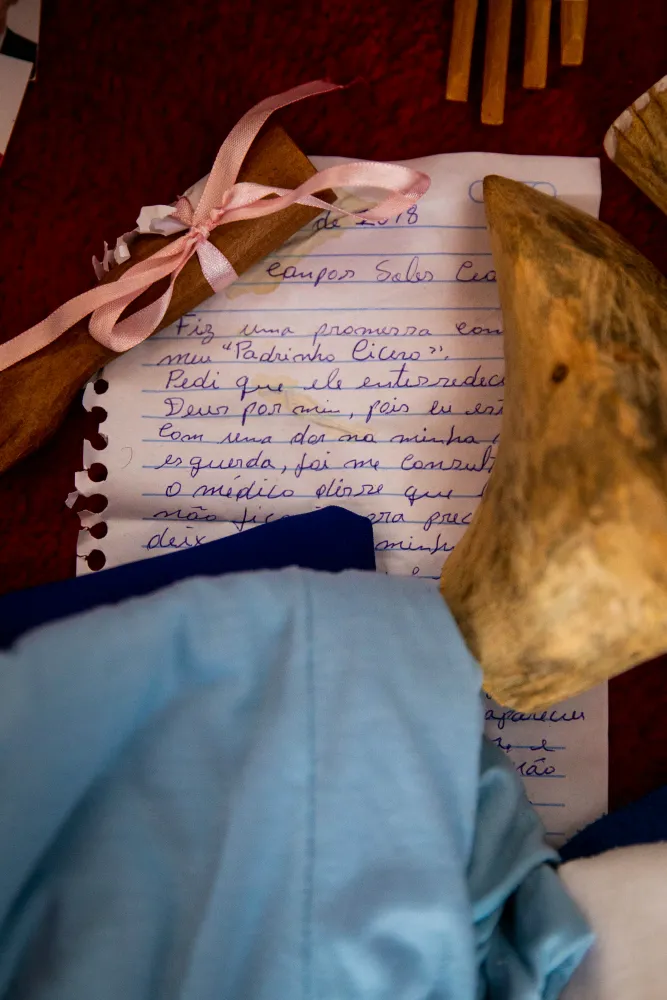 de 2018
campos Sales Cea
Fiz uma promessa com
meu "Padrinho Cicero".
Pedi que ele enterredec
Deus por mim, pois eu est
com uma dor na minha
esquerda, foi me consult
o médico disse que
não fic ora prec
deix minh
apareceu
e
não